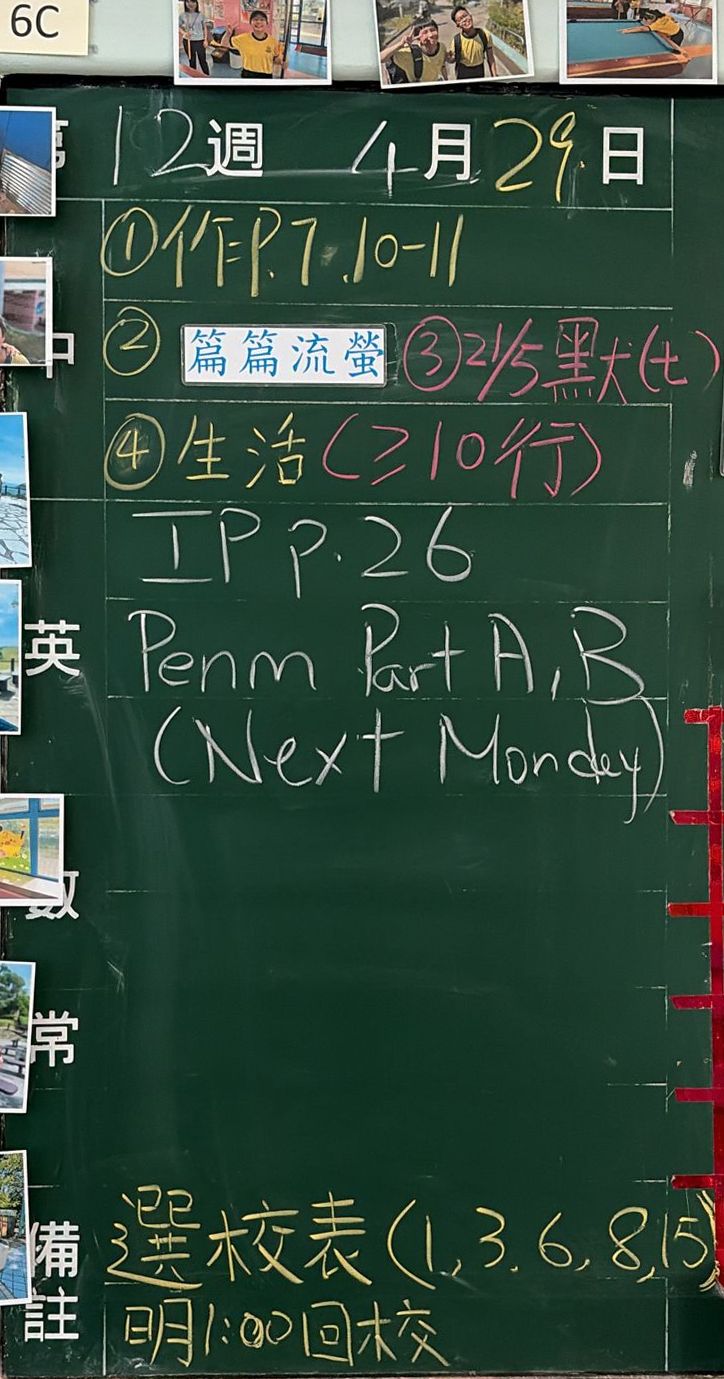 6C
第12週 4月29日
①作P.7,10-11
中 ② 篇篇流螢 ③21/5默(七)
④生活(≥10行)
IP p.26
英 Penm Part A,B
(Next Monday)
數
常
備註 選校表(1,3,6,8,15)
明1:00回校